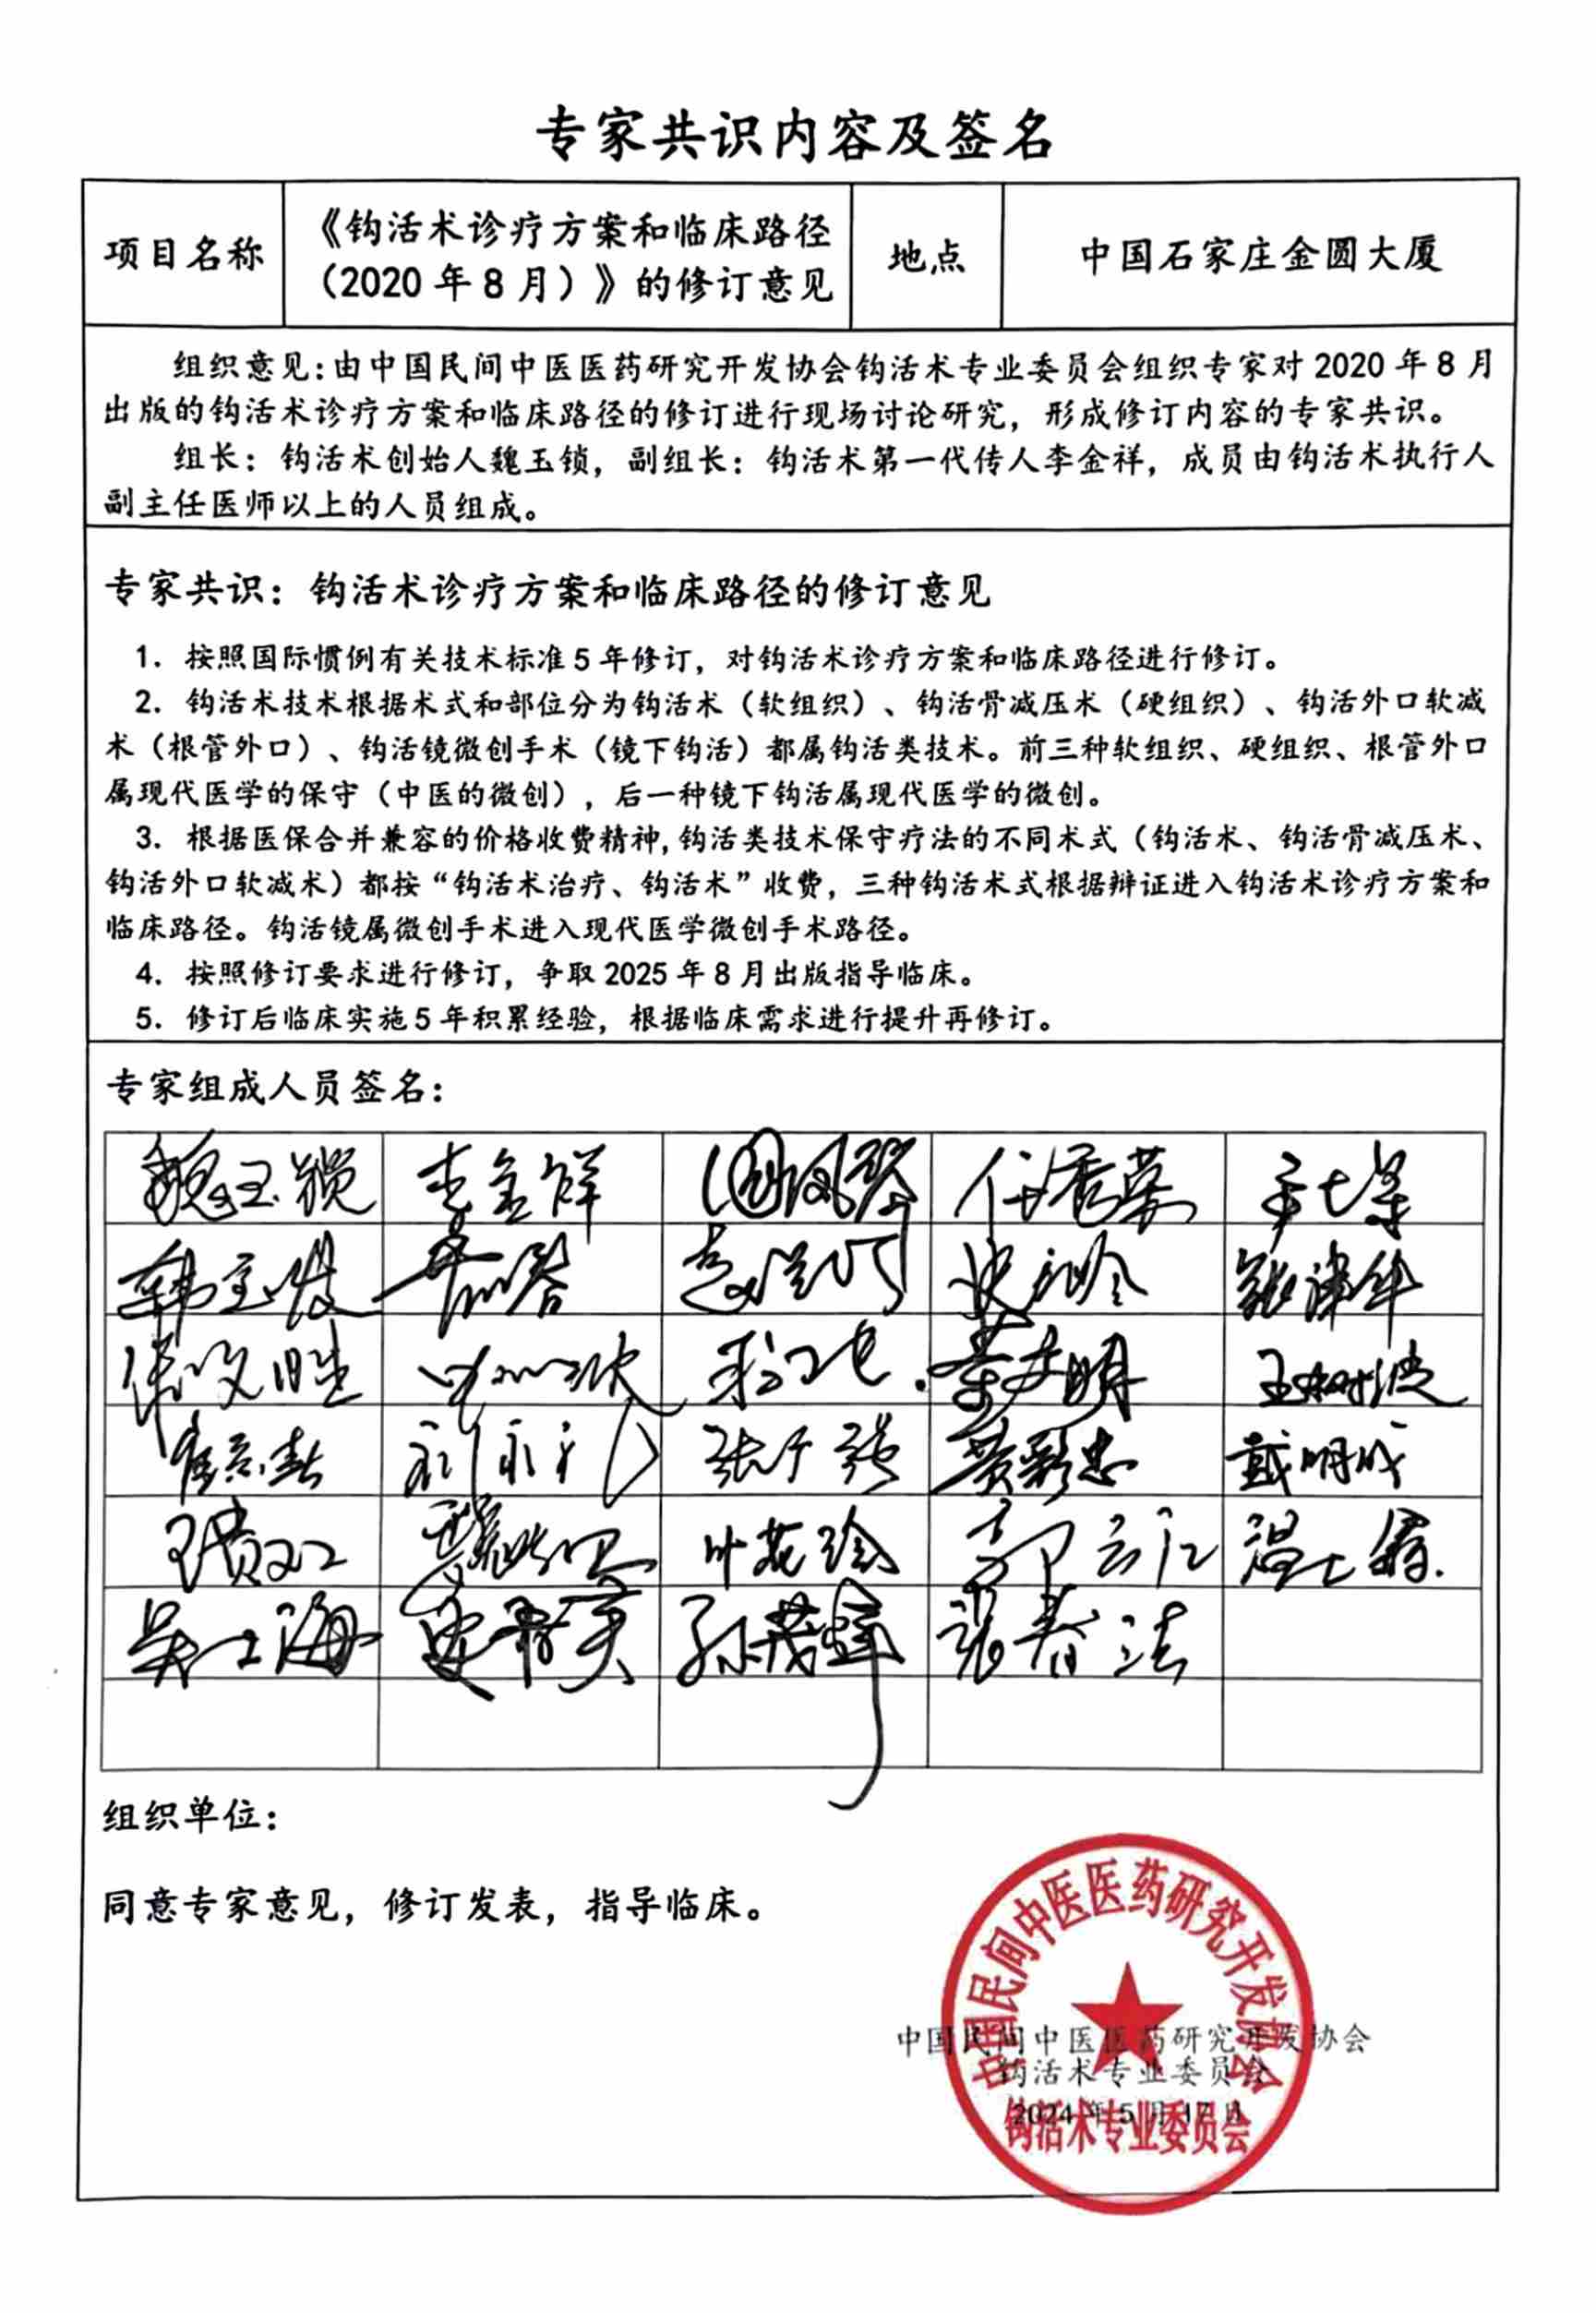 专家共识内容及签名
项目名称
《钩活术诊疗方案和临床路径
（2020 年 8 月）》的修订意见
地点
中国石家庄金圆大厦
组织意见：由中国民间中医医药研究开发协会钩活术专业委员会组织专家对 2020 年 8 月
出版的钩活术诊疗方案和临床路径的修订进行现场讨论研究，形成修订内容的专家共识。
组长：钩活术创始人魏玉锁，副组长：钩活术第一代传人李金祥，成员由钩活术执行人
副主任医师以上的人员组成。
专家共识：钩活术诊疗方案和临床路径的修订意见
1. 按照国际惯例有关技术标准 5 年修订，对钩活术诊疗方案和临床路径进行修订。
2. 钩活术技术根据术式和部位分为钩活术（软组织）、钩活骨减压术（硬组织）、钩活外口软减
术（根管外口）、钩活镜微创手术（镜下钩活）都属钩活类技术。前三种软组织、硬组织、根管外口
属现代医学的保守（中医的微创），后一种镜下钩活属现代医学的微创。
3. 根据医保合并兼容的价格收费精神，钩活类技术保守疗法的不同术式（钩活术、钩活骨减压术、
钩活外口软减术）都按“钩活术治疗、钩活术”收费，三种钩活术式根据辩证进入钩活术诊疗方案和
临床路径。钩活镜属微创手术进入现代医学微创手术路径。
4. 按照修订要求进行修订，争取 2025 年 8 月出版指导临床。
5. 修订后临床实施 5 年积累经验，根据临床需求进行提升再修订。
专家组成人员签名：
魏玉锁 李金祥 国凤琴 任秀荣
韩宝发 张津华
王树波
刘永利 张广强 黄彩忠 戴明成
叶花玲 郭云江
吴士海 孙茂峰 裴春法
组织单位：
同意专家意见，修订发表，指导临床。
中国民间中医医药研究开发协会
钩活术专业委员会
2024 年 5 月 17 日
中国民间中医医药研究开发协会
钩活术专业委员会